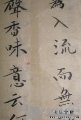 為入流而無
聲香味意云何